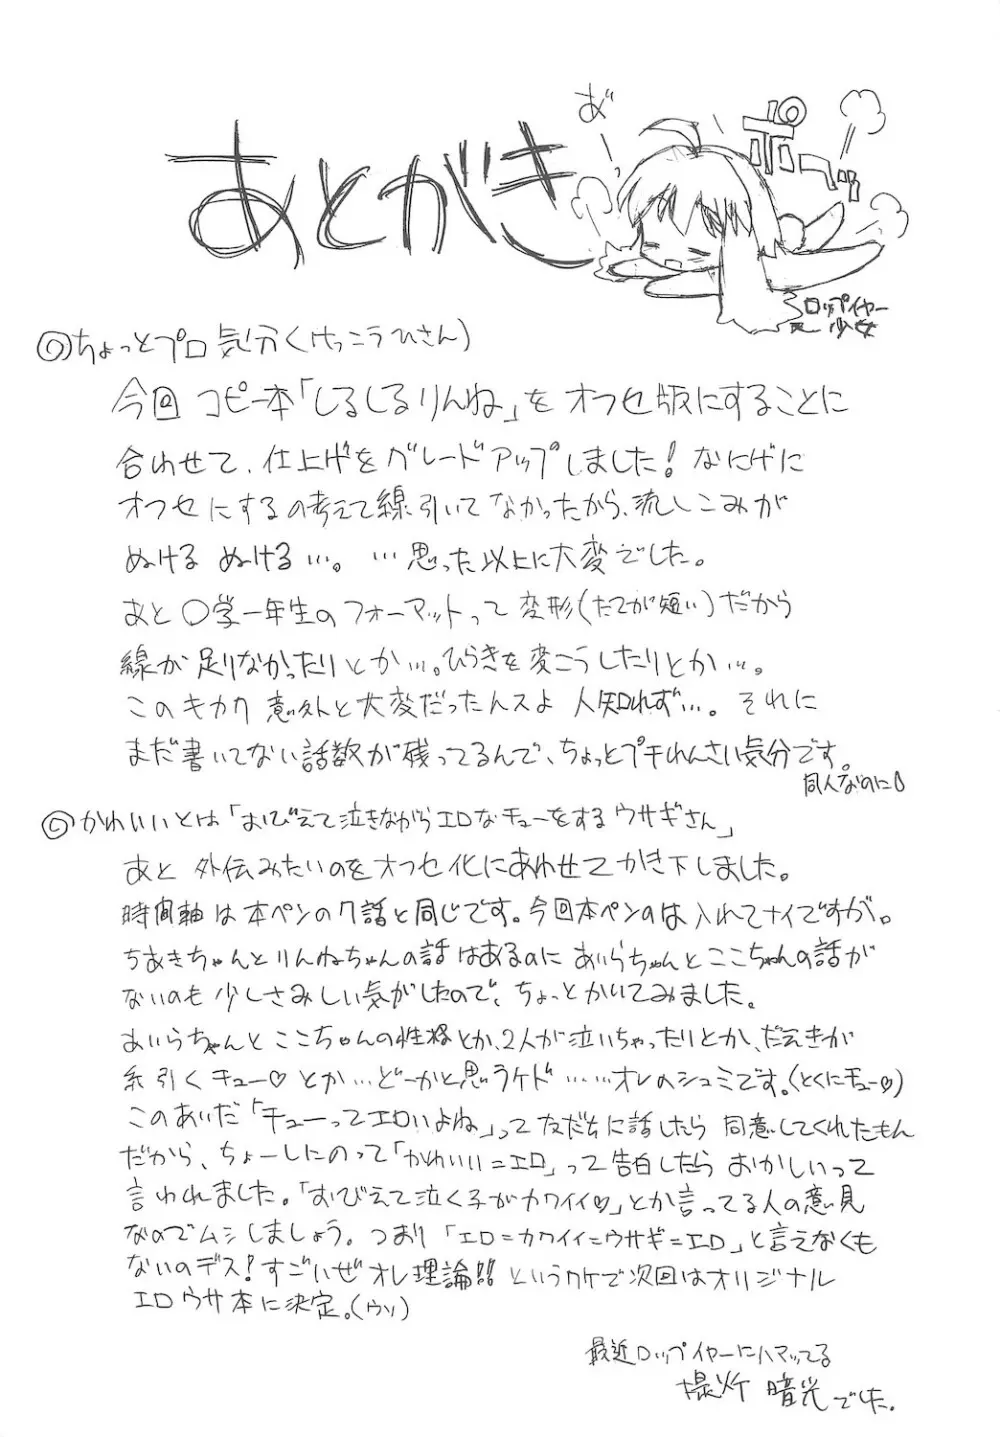 あとがき
あ゛
ポヘッ
ロップイヤー
少女
◎ちょっとプロ気分(けっこうひさん)
今回コピー本「しるしるりんね」をオフセ版にすることに
合わせて、仕上げをグレードアップしました!なにげに
オフセにするの考えて線引いてなかったから、流しこみが
ぬけるぬける…。…思った以上に大変でした。
あと〇学一年生のフォーマットって変形(たてが短い)だから
線が足りなかったりとか…。ひらきを変こうしたりとか…。
このキカク意外と大変だったんスよ人知れず…。それに
まだ書いてない話数が残ってるんで、ちょっとプチれんさい気分です。
同人なのに
◎かわいいとは「おびえて泣きながらエロなチューをするウサギさん」
あと外伝みたいのをオフセ化にあわせてかき下しました。
時間軸は本ペンの7話と同じです。今回本ペンのは入れてナイですが。
ちあきちゃんとりんねちゃんの話はあるのにあいらちゃんとここちゃんの話が
ないのも少しさみしい気がしたので、ちょっとかいてみました。
あいらちゃんとここちゃんの性格とか、2人が泣いちゃったりとか、だえきが
糸引くチュー♡とか…どーかと思うケド……オレのシュミです。(とくにチュー♡)
このあいだ「チューってエロいよね」って友だちに話したら同意してくれたもん
だから、ちょーしにのって「かわいい=エロ」って告白したらおかしいって
言われました。「おびえて泣く子がカワイイ♡」とか言ってる人の意見
なのでムシしましょう。つまり「エロ=カワイイ=ウサギ=エロ」と言えなくも
ないのデス!すごいぜオレ理論!!というワケで次回はオリジナル
エロウサ本に決定。(ウソ)
最近ロップイヤーにハマッてる
暗光でした。